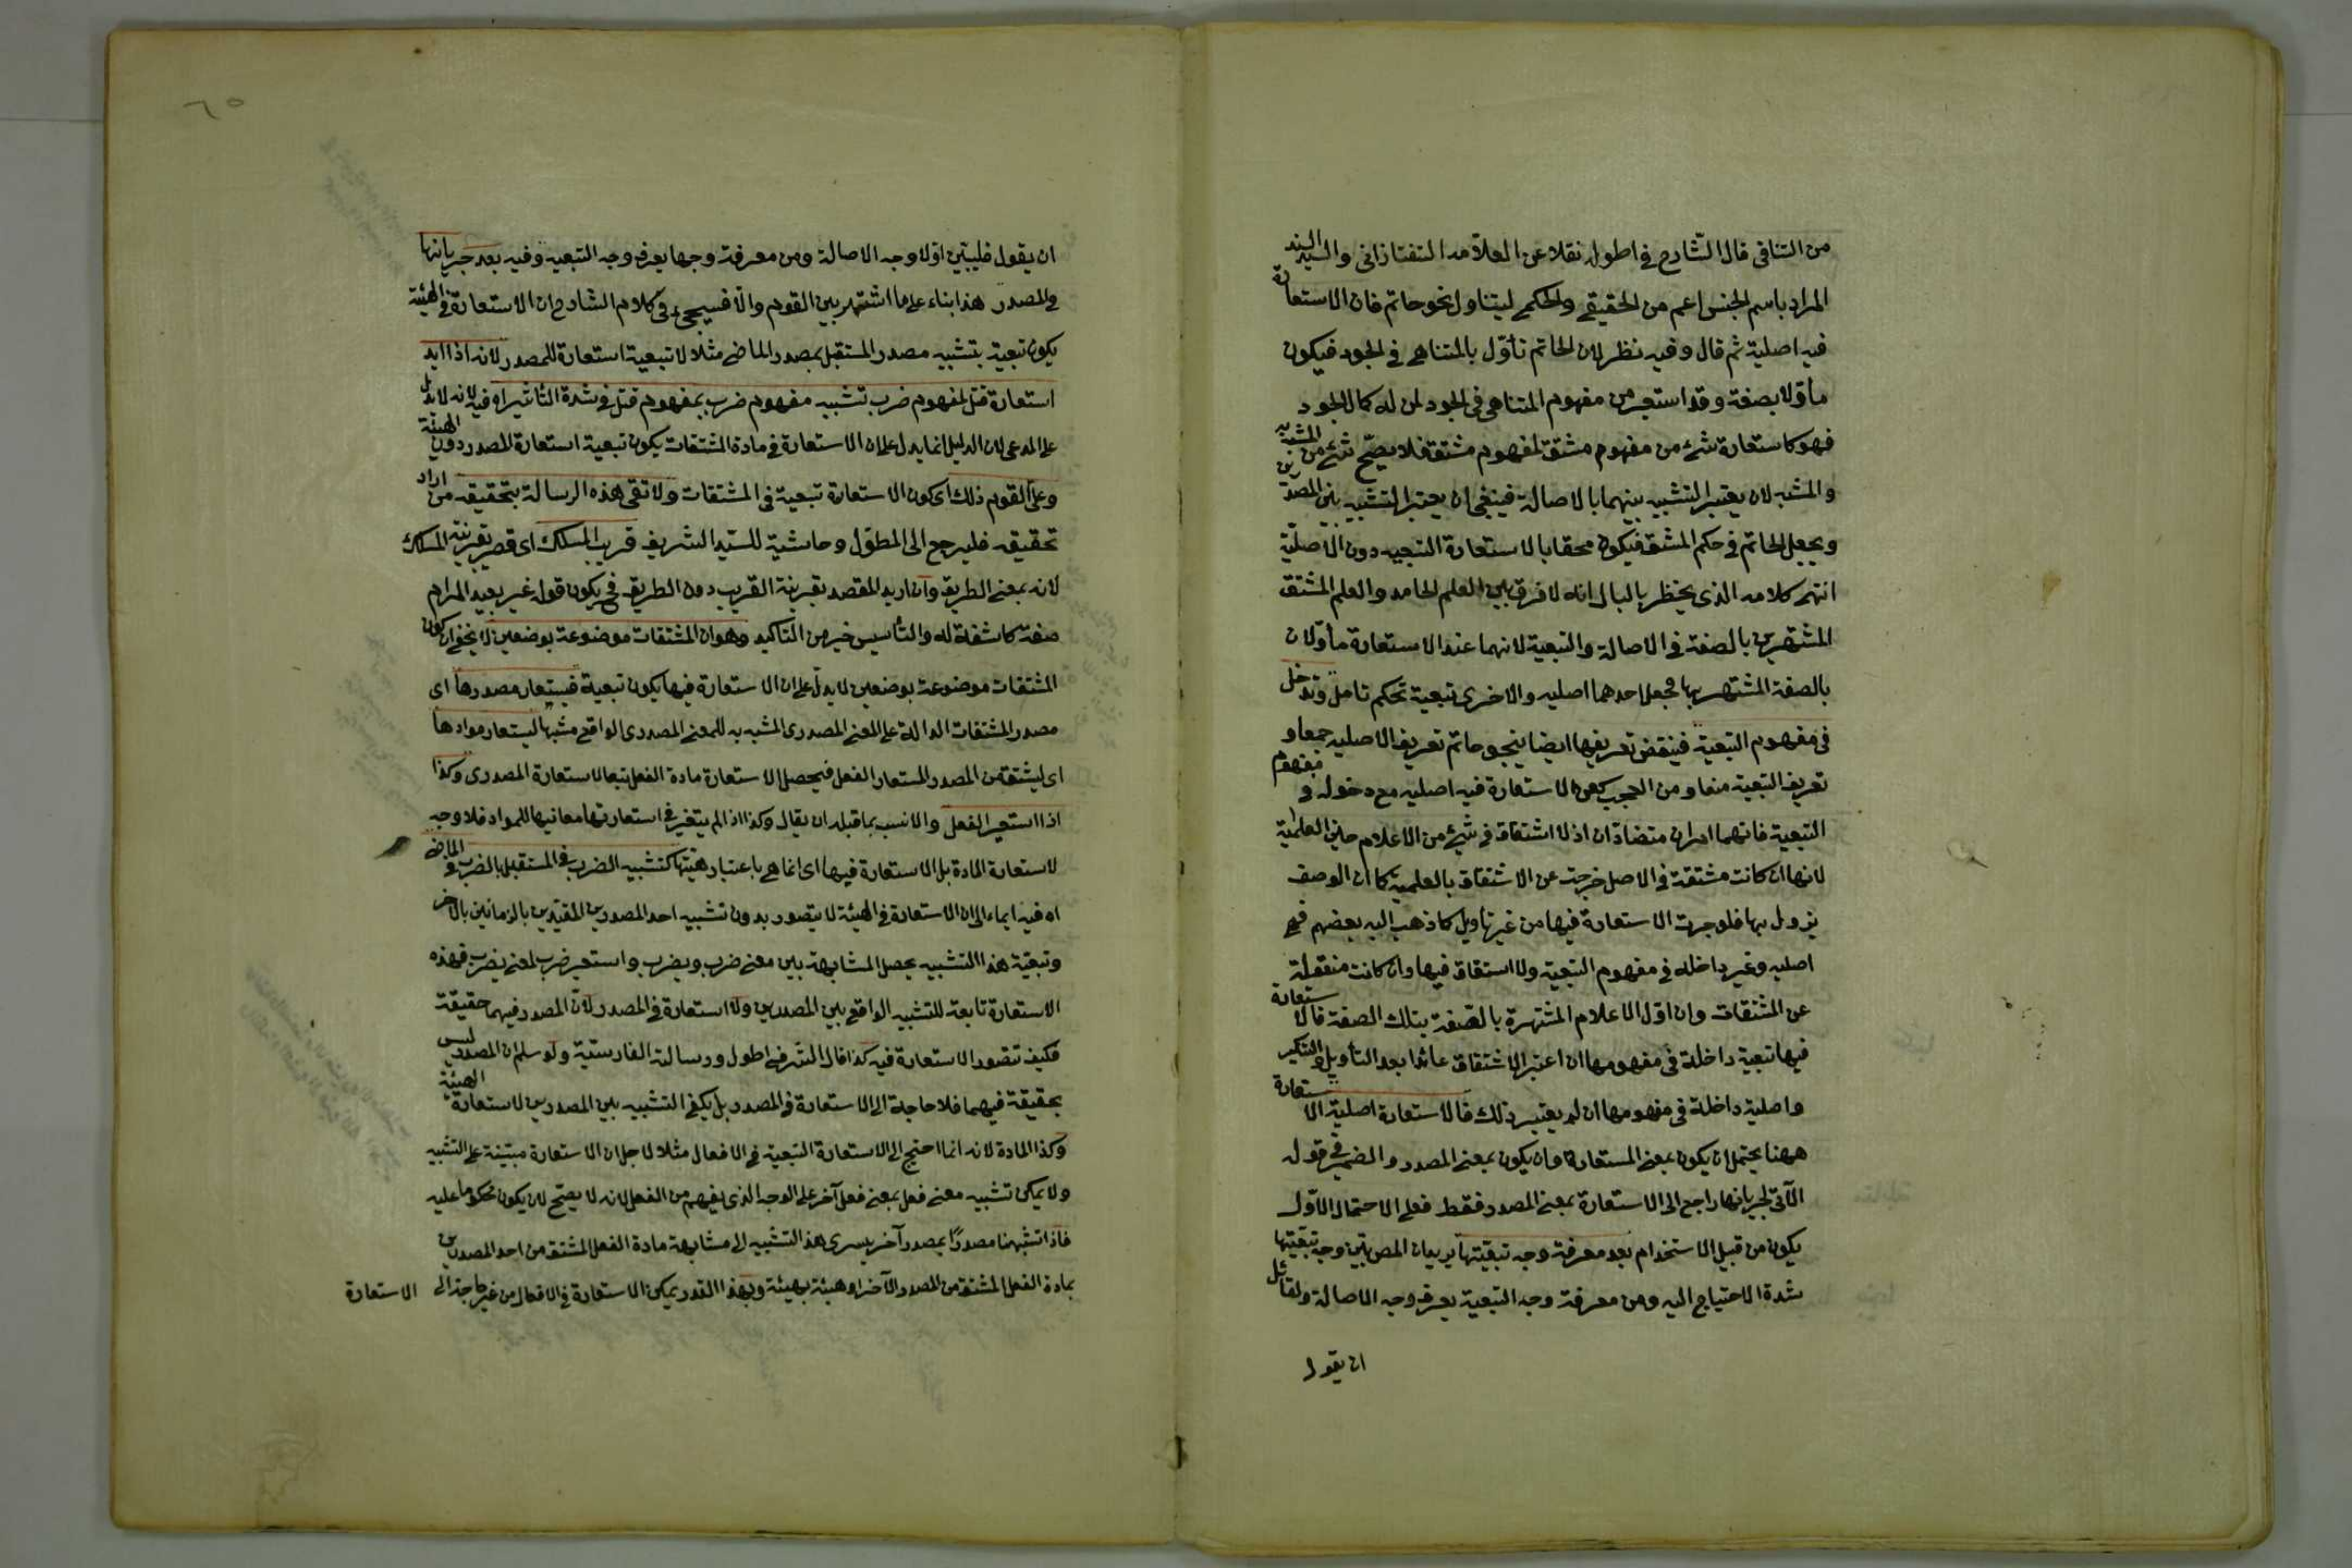 من التنافى قال الشارح فى اطوله نقلا عن العلامه التفتازانى والسيد السند
المراد باسم الجنس اعم من الحقيقى والحكمى ليتناول نحو حاتم فان الاستعارة
فيه اصلية ثم قال وفيه نظر لان الحاتم تأوّل بالمتناهى فى الجود فيكون
مأوّلا بصفة وقد استعير من مفهوم المتناهى فى الجود لمن له كمال الجود
فهو كاستعارة شئ من مفهوم مشتق لمفهوم مشتق فلا يصحّ شئ من المشبه به
والمشبه لان يعتبر التشبيه بينهما بالاصالة فينبغى ان يعتبر التشبيه بين المصدرين
ويجعل الحاتم فى حكم المشتق فيكون محقا بالاستعارة التبعيه دون الاصليّة
انتهى كلامه الذى يخطر بالبال انه لا فرق بين العلم الجامد والعلم المشتق
المشتهرين بالصفة فى الاصالة والتبعية لانهما عند الاستعارة مأوّلان
بالصفة المشتهر بها فجعل احدهما اصليه والاخرى تبعية تحكم تامل وتدخل
فى مفهوم التبعية فينقض تعريفها ايضا بنحو حاتم تعريف الاصليه جمعا و
تعريف التبعية منعا ومن العجب كون الاستعارة فيه اصليه مع دخوله فى مفهوم
التبعية فانهما امران متضادّان اذ لا اشتقاق فى شئ من الاعلام حين العلميّة
لانها ان كانت مشتقة فى الاصل خرجت عن الاشتقاق بالعلمية كما ان الوصف
يزول بها فلو جرت الاستعارة فيها من غير تأويل كما ذهب اليه بعضهم فهى
اصليه وغير داخله فى مفهوم التبعيّة ولا اشتقاق فيها وان كانت منقولة
عن المشتقات وان اوّل الاعلام المشتهرة بالصّفة بتلك الصفة فالاستعارة
فيها تبعية داخلة فى مفهومها ان اعتبر الاشتقاق عائدا بعد التأويل والتنكير
واصلية داخلة فى مفهومها ان لم يعتبر ذلك فالاستعارة اصلية الاستعارة
ههنا يحتمل ان يكون بمعنى المستعار وان يكون بمعنى المصدر والضمير فى قوله
الآتى لجريانها راجع الى الاستعارة بمعنى المصدر فقط فعلى الاحتمال الاوّل
يكون من قبيل الاستخدام بعد معرفة وجه تبعيّتها يريدان المص بيّن وجه تبعيّتها
لشدة الاحتياج اليه ومن معرفة وجه التبعية يعرف وجه الاصالة ولقائل
ان يقول
٦٥
ان يقول فليبيّن اوّلا وجه الاصالة ومن معرفة وجهها يعرف وجه التبعيه وفيه بعد جريانها
فى المصدر هذا بناء على ما اشتهر بين القوم والّا فسيجئ فى كلام الشارح ان الاستعارة فى الهيئة
يكون تبعية بتشبيه مصدر المستقبل بمصدر الماضى مثلا لا تبعية استعارة للمصدر لانه اذا اريد
استعارة قتل لمفهوم ضرب تشبيه مفهوم ضرب بمفهوم قتل فى شدة التأثير اه فيه لانه لا يدل
على المدعى لان الدليل انما يدل على ان الاستعارة فى مادة المشتقات يكون تبعية استعارة المصدر دون الهيئة
وعلى القوم ذلك اى كون الاستعارة تبعية فى المشتقات ولا تفى هذه الرسالة بتحقيقه من اراد
تحقيقه فليرجع الى المطوّل وحاشية للسيّد الشريف قريب المسلك اى قصير بقرينة المسلك
لانه بمعنى الطريق وان اريد المقصد بقرينة القريب دون الطريق فح يكون قوله غير بعيد المرام
صفة كاشفة له والتأسيس خير من التاكيد وهو ان المشتقات موضوعة بوضعين لا يخفى ان كون
المشتقات موضوعة بوضعين لا يدلّ على ان الاستعارة فيها يكون تبعية فيستعار مصدرها اى
مصدر المشتقات الدالة على المعنى المصدرى المشبه به للمعنى المصدرى الواقع مشبها ليستعار موادها
اى ليشتق من المصدر المستعار الفعل فيحصل الاستعارة مادة الفعل تبعا لاستعارة المصدرى وكذا
اذا استعير الفعل والانسب بما قبله ان يقال وكذا اذا لم يتغير فى استعارتها معانيها للمواد فلا وجه
لاستعارة المادة بل الاستعارة فيها اى انما هى باعتبار هيئتها كتشبيه الضرب فى المستقبل بالضرب فى الماضى
اه فيه ايماء الى ان الاستعارة فى الهيئة لا يتصور بدون تشبيه احد المصدرين المقيّدين بالزمانين بالآخر
وتبعيّة هذا التشبيه يحصل المشابهة بين معنى ضرب ويضرب واستعير ضرب لمعنى يضرب فهذه
الاستعارة تابعة للتشبيه الواقع بين المصدرين ولا استعارة فى المصدر لانّ المصدر فيهما حقيقة
فكيف تتصور الاستعارة فيه كذا قال الشر فى اطوله ورسالته الفارسيّة ولو سلم ان المصدر ليس
بحقيقة فيهما فلا حاجة الى الاستعارة فى المصدر بل يكفى التشبيه بين المصدرين لاستعارة الهيئة
وكذا المادة لانه انما احتيج الى الاستعارة التبعية فى الافعال مثلا لاجل ان الاستعارة مبتنية على التشبيه
ولا يمكن تشبيه معنى فعل بمعنى فعل آخر على الوجه الذى يفهم من الفعل لانه لا يصحّ لان يكون محكوما عليه
فاذا شبّهنا مصدرًا بمصدر آخر يسرى هذا التشبيه الى مشابهة مادة الفعل المشتق من احد المصدرين
بمادة الفعل المشتق من المصدر الآخر او هيئة بهيئة وبهذا القدر يمكن الاستعارة فى الافعال من غير حاجة الى الاستعارة